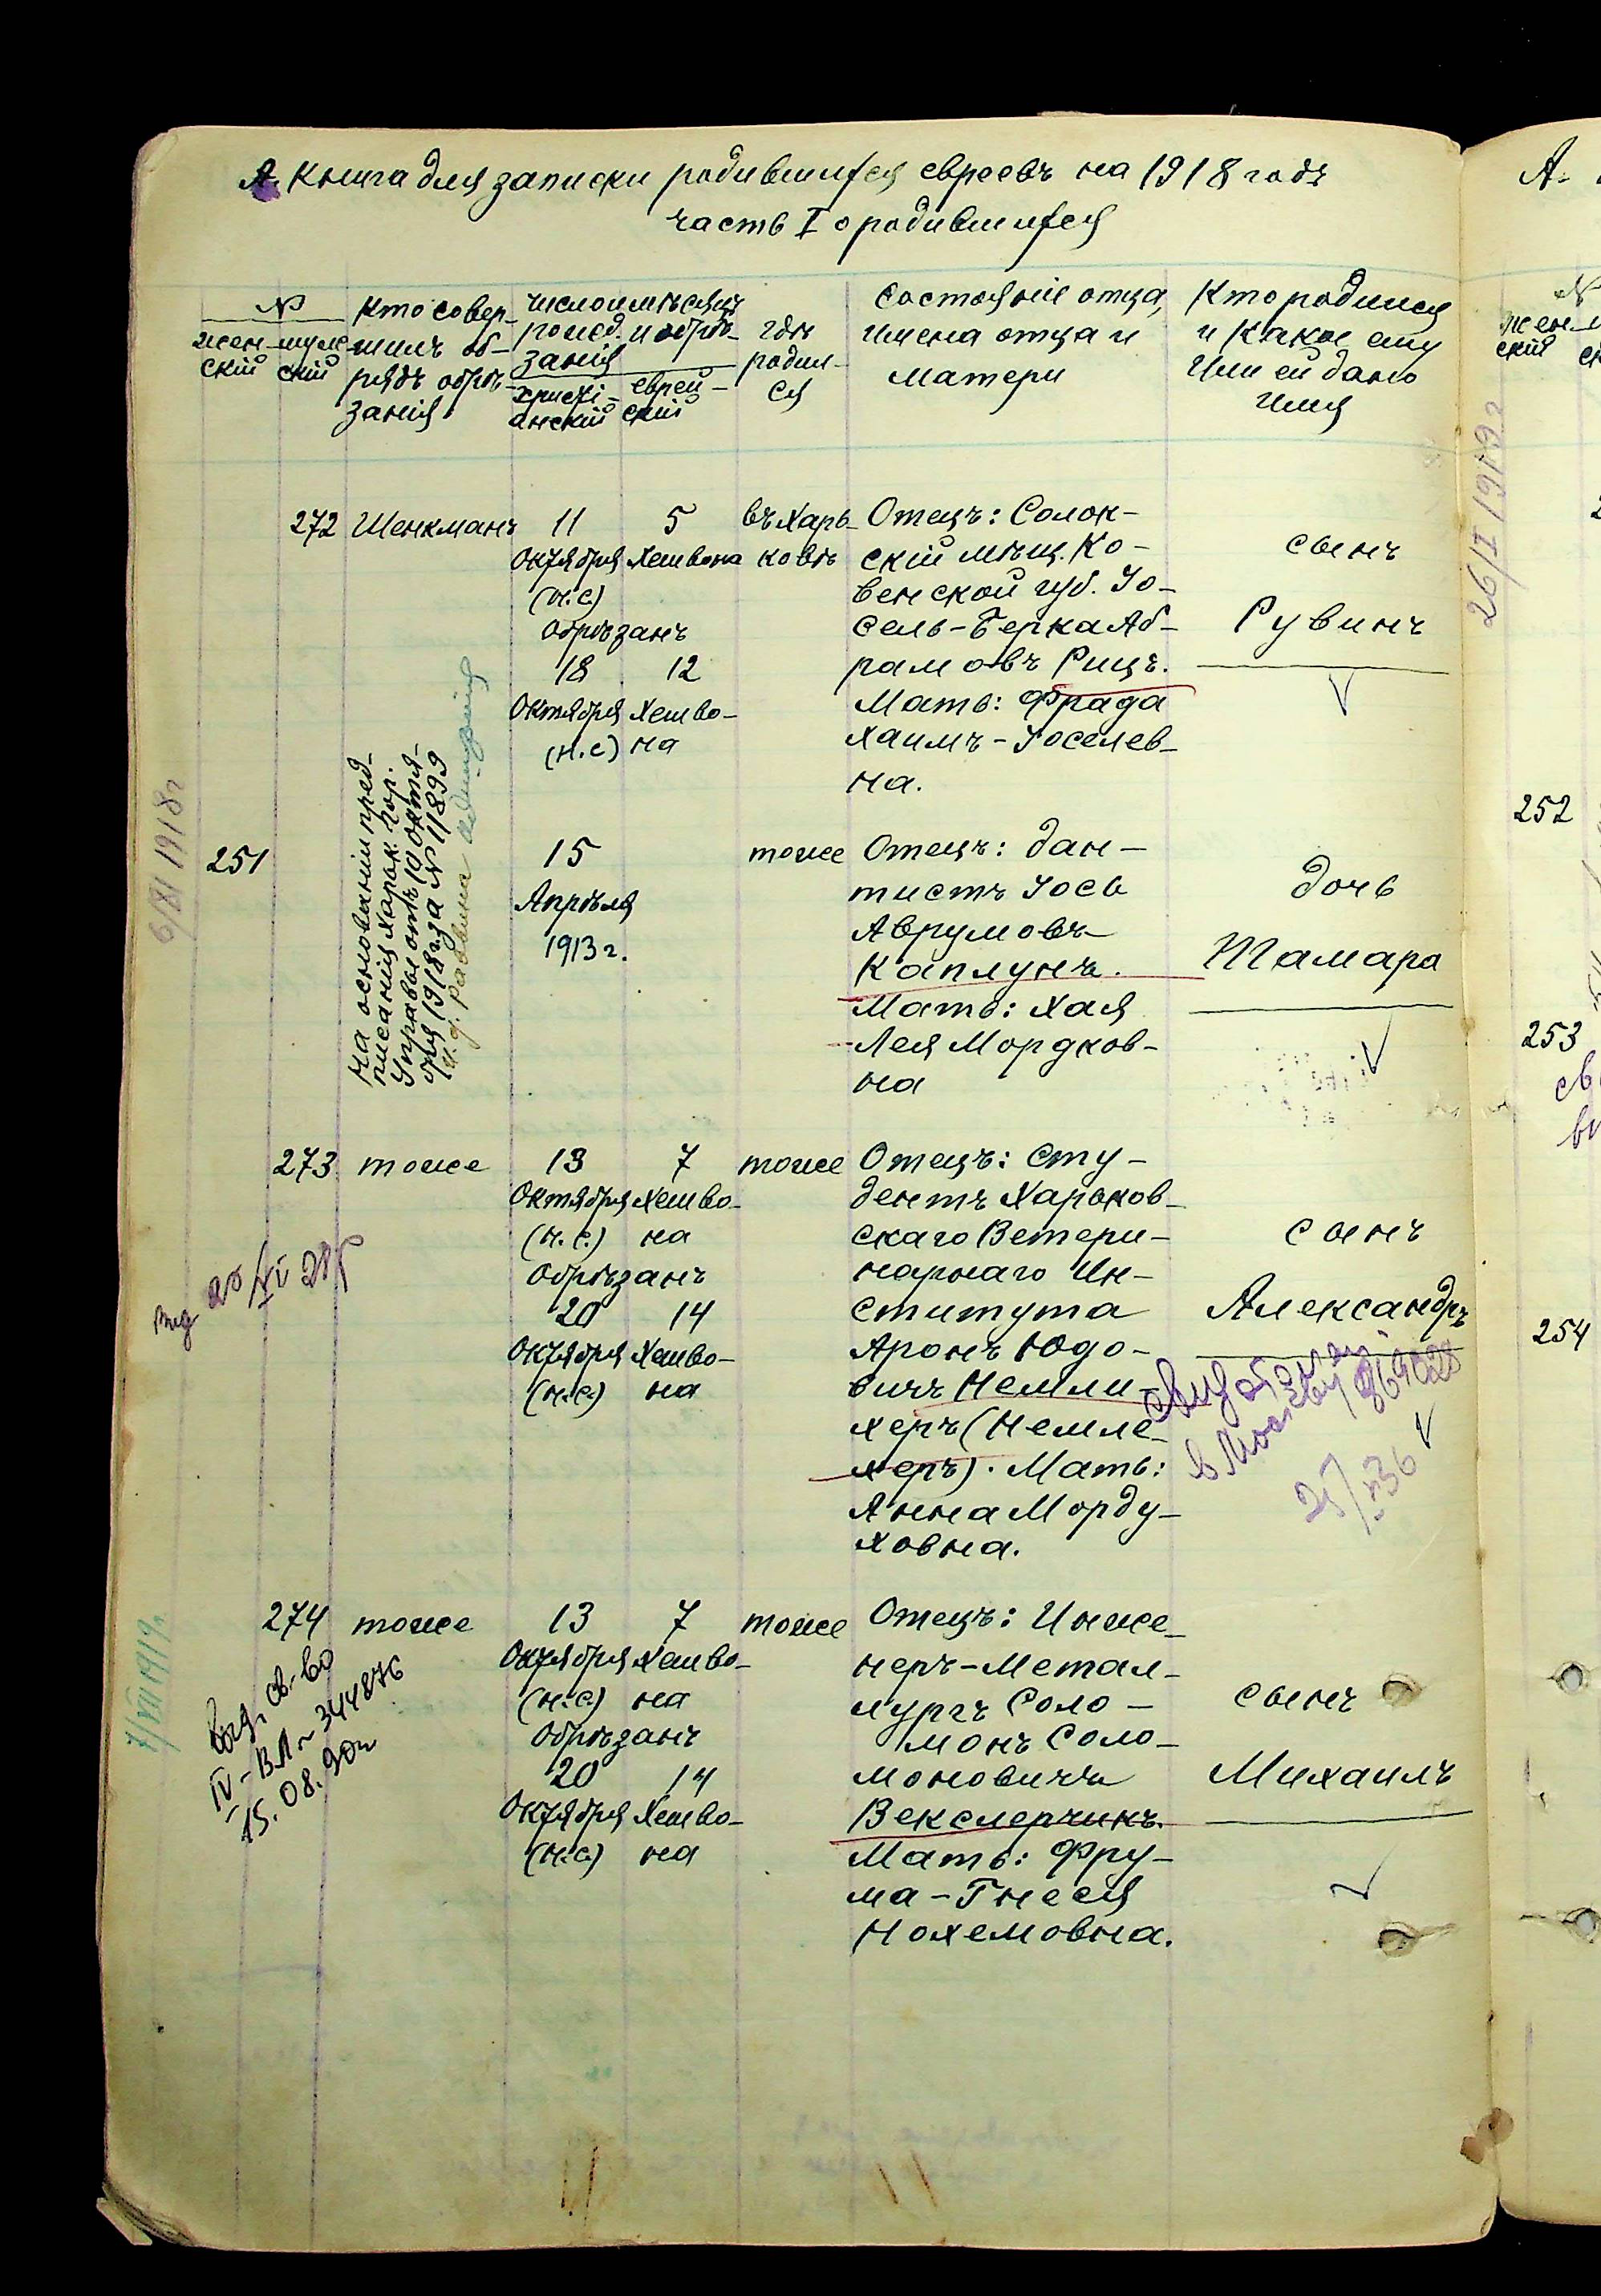 А. Книга для записки родившихся евреевъ на 1918 годъ
часть I о родившихся
№
жен-
скій
муж-
скій
Кто совер-
шилъ об-
рядъ обрѣ-
занія
число и мѣсяцъ
рожд. и обрѣ-
занія
христі-
анскій
еврей-
скій
гдѣ
родил-
ся
Состояніе отца,
имена отца и
матери
Кто родился
и какое ему
или ей дано
имя
272 Шенкманъ
11
Октября
(н.с.)
Обрѣзанъ
18
Октября
(н.с)
5
Хешвона
12
Хешво-
на
въ Харь-
ковѣ
Отецъ: Салок-
скій мѣщ. Ко-
венской губ. Іо-
сель-Берка Аб-
рамовъ Рицъ.
Мать: Фрада
Хаимъ-Іоселев-
на.
сынъ
Рувинъ
6/XI 1918г
251
На основаніи пред-
писанія Харьк. Гор.
Управы отъ 10 октя-
бря 1918 г. за № 11899
И. д. раввина
15
Апрѣля
1913 г.
тоже
Отецъ: Дан-
тистъ Іось
Аврумовъ
Каплунъ.
Мать: Хая
Лея Мордков-
на
дочь
Тамара
273 тоже
13
Октября
(н.с.)
Обрѣзанъ
20
Октября
(н.с.)
7
Хешво-
на
14
Хешво-
на
тоже
Отецъ: Сту-
дентъ Харьков-
скаго Ветери-
нарнаго Ин-
ститута
Аронъ Юдо-
вичъ Немли-
херъ (Немле-
херъ). Мать:
Анна Морду-
ховна.
сынъ
Александръ
274 тоже
7/VIII 1919г.
выд. св-во
IV-ВЛ № 344876
15.08.90г
13
Октября
(н.с.)
Обрѣзанъ
20
Октября
(н.с.)
7
Хешво-
на
14
Хешво-
на
тоже
Отецъ: Инже-
неръ-Метал-
лургъ Соло-
монъ Соло-
моновичъ
Векслерчикъ.
Мать: Фру-
ма-Гнеся
Нохемовна.
сынъ
Михаилъ
26/II 1919г
А.
№
жен-
скій
252
253
254